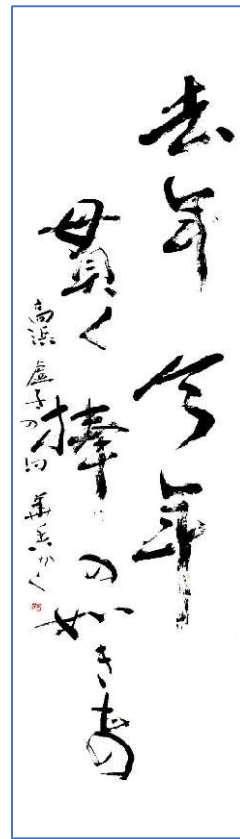 去年今年
貫く棒の如きもの
高浜虚子の句 華岳かく